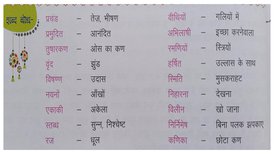 शब्द कोश-
प्रचंड – तेज, भीषण वीथियों – गलियों में
प्रमुदित – आनंदित अभिलाषी – इच्छा करनेवाला
तुषारकण – ओस का कण रमणियों – स्त्रियों
वृंद – झुंड हर्षित – उल्लास के साथ
विषण्ण – उदास स्मिति – मुसकराहट
नयनों – आँखों निहारना – देखना
एकाकी – अकेला विलीन – खो जाना
स्तब्ध – सुन्न, निश्चेष्ट निर्निमेष – बिना पलक झपकाए
रज – धूल कणिका – छोटा कण